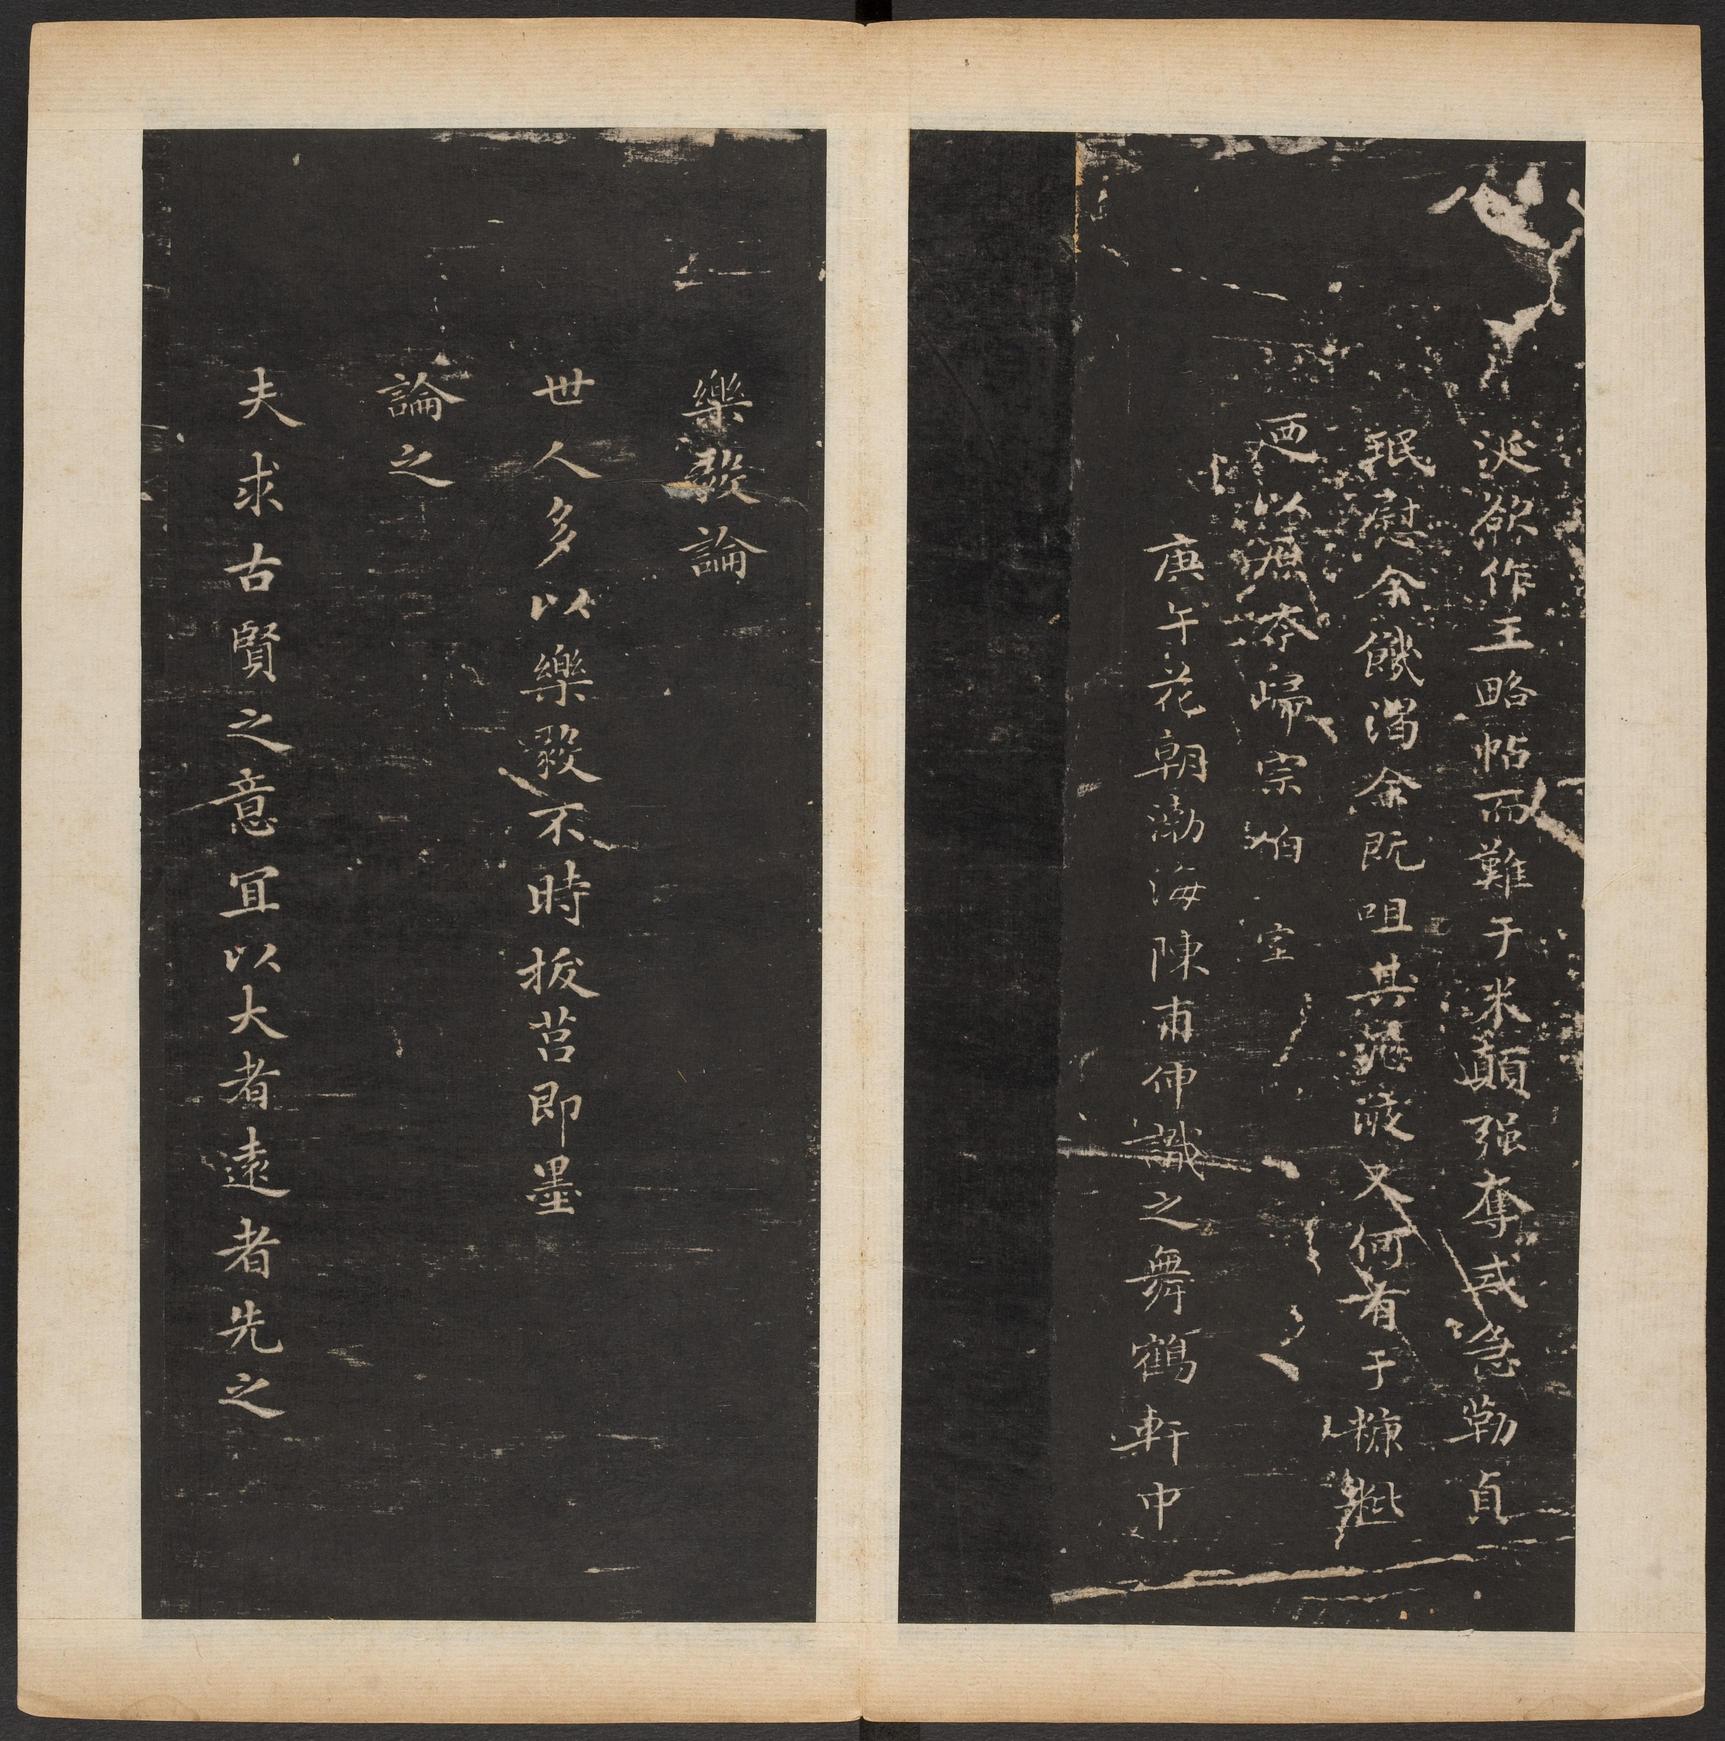 涎欲作王略帖而難于米顛强奪或急勒貞
珉慰余饑渴余既咀其又何有于糠粃
迺以原本歸宗伯室
庚午花朝渤海陳甫伸識之舞鶴軒中
樂毅論
世人多以樂毅不時拔莒即墨
論之
夫求古賢之意宜以大者遠者先之